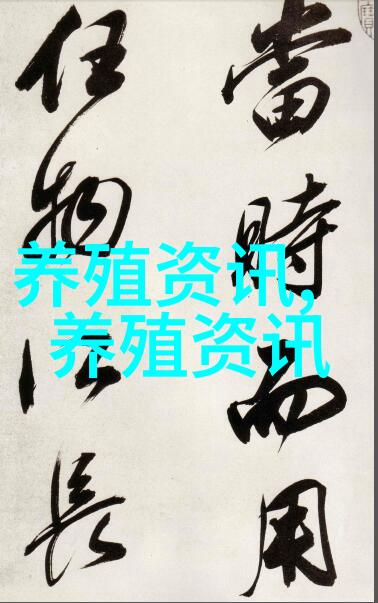 當時而用
任物以長
养殖资讯,
养殖资讯